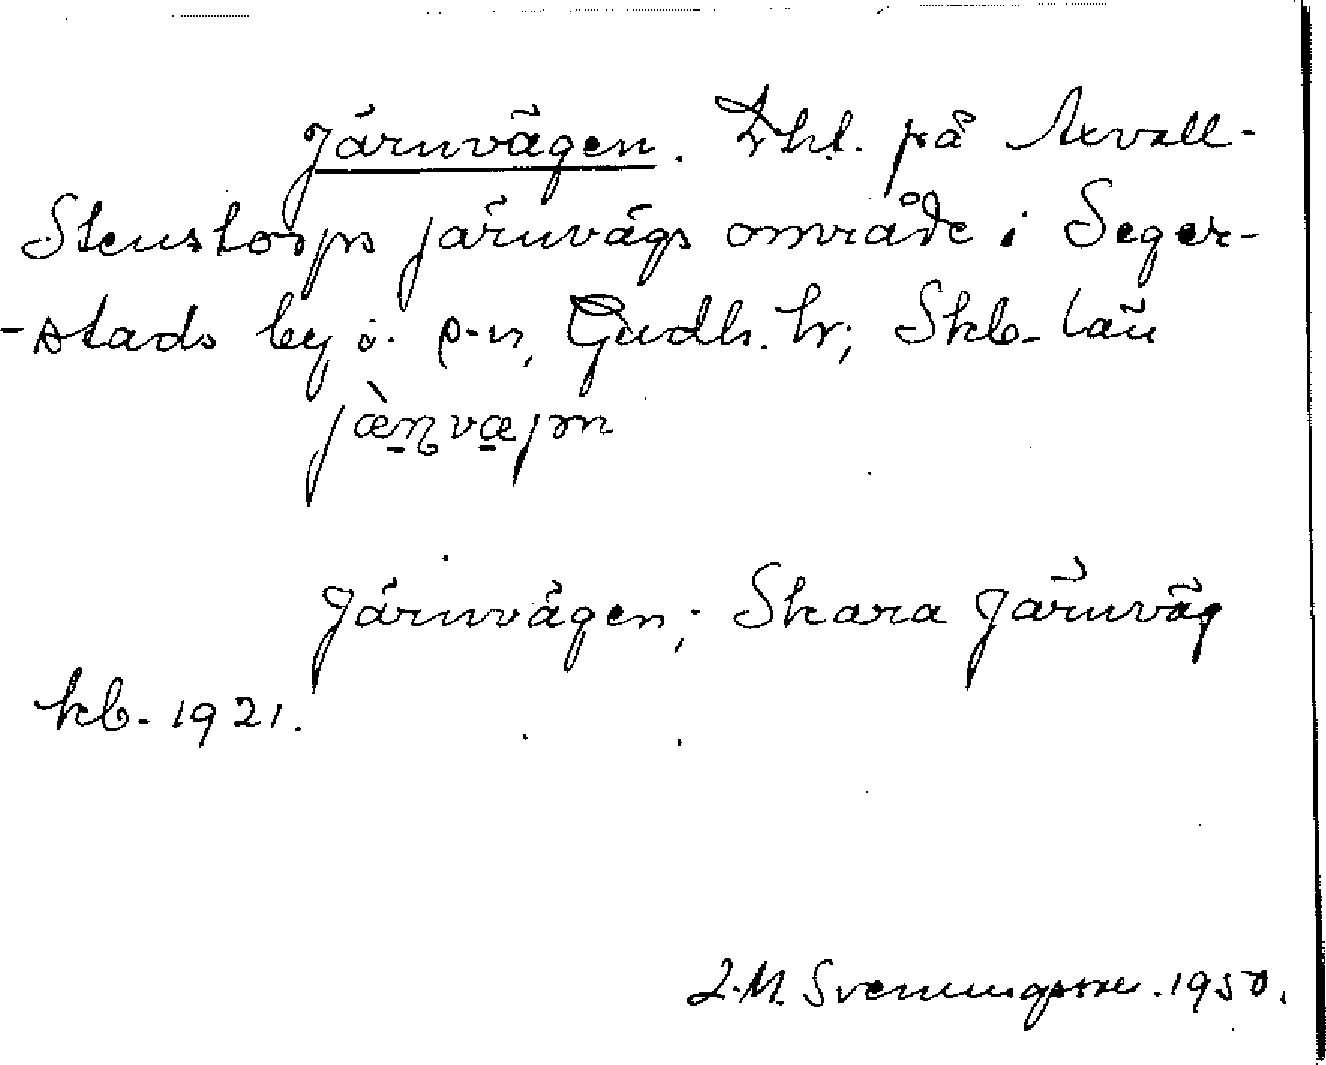 Järnvägen. Lhl. på Axvall-
Stenstorps järnvägs område i Seger-
-stads by i. s-n, Gudh. hr; Skb. län
jæ̀ɳvæjən
Järnvägen; Skara Järnväg
kb. 1921.
L.M. Svenungsson. 1950.